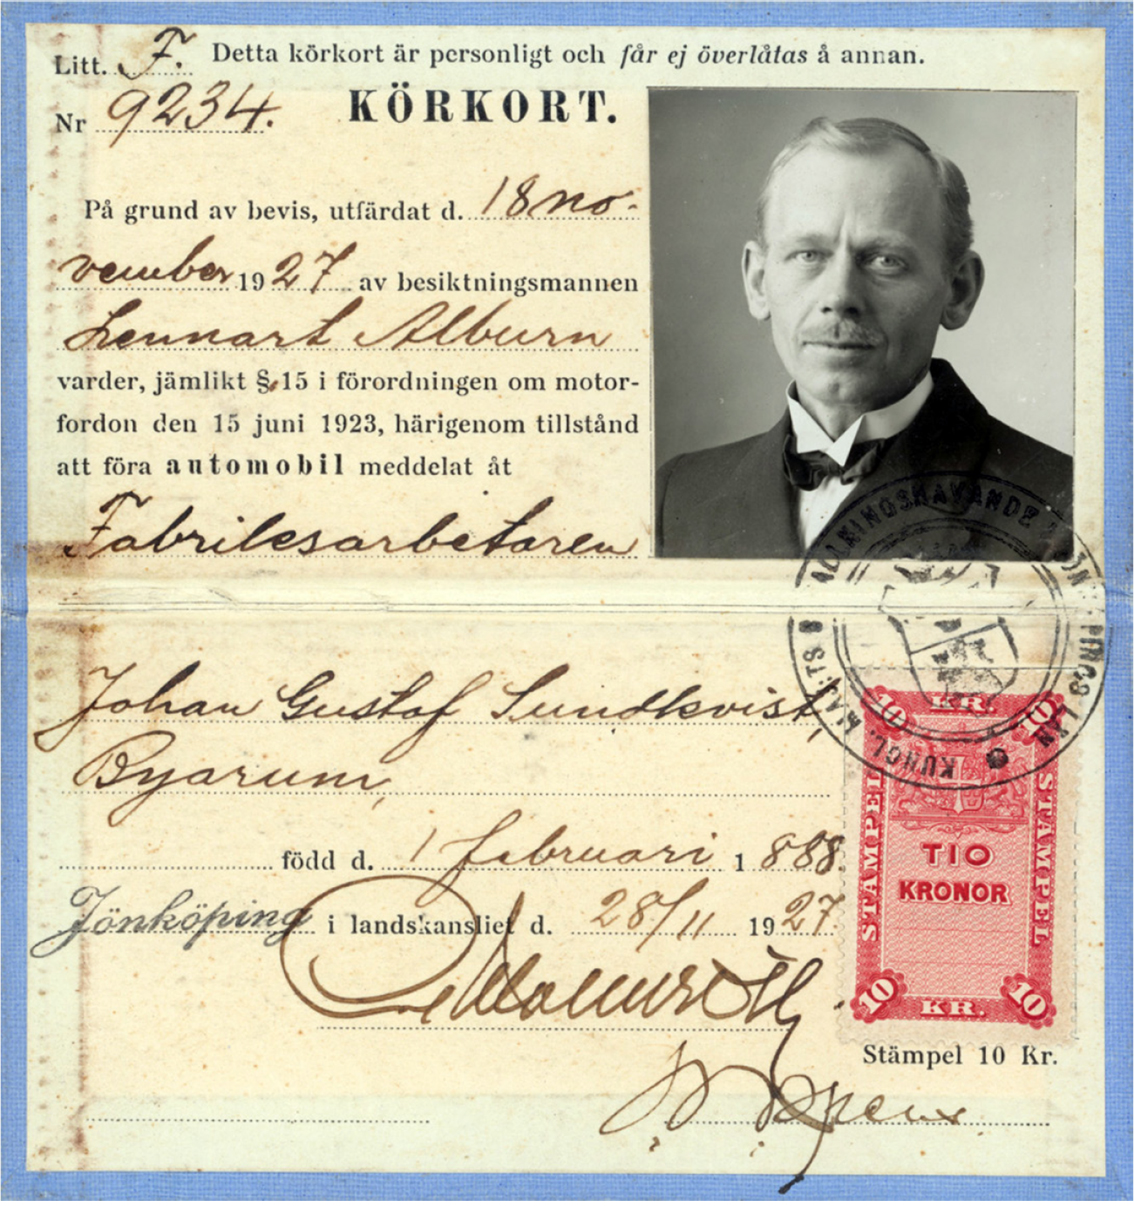 Litt. F. Detta körkort är personligt och får ej överlåtas å annan.
Nr 9234. KÖRKORT.
På grund av bevis, utfärdat d. 18 no-
vember 1927 av besiktningsmannen
Lennart Alburn
varder, jämlikt § 15 i förordningen om motor-
fordon den 15 juni 1923, härigenom tillstånd
att föra automobil meddelat åt
Fabriksarbetaren
Johan Gustaf Sundkvist,
Byarum,
född d. 1 februari 1888.
Jönköping i landskansliet d. 28/11 1927.
KUNGL. MAJ:TS BEFALLNINGSHAVANDE JÖNKÖPINGS LÄN
10 KR. 10
STÄMPEL
TIO
KRONOR
STÄMPEL
10 KR. 10
Stämpel 10 Kr.